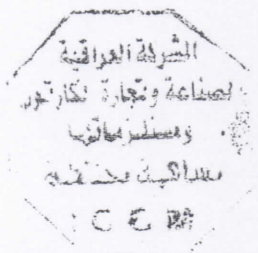 الشركة العراقية
لصناعة وتجارة الكارتون
ومستلزماتها
مساهمة مختلطة